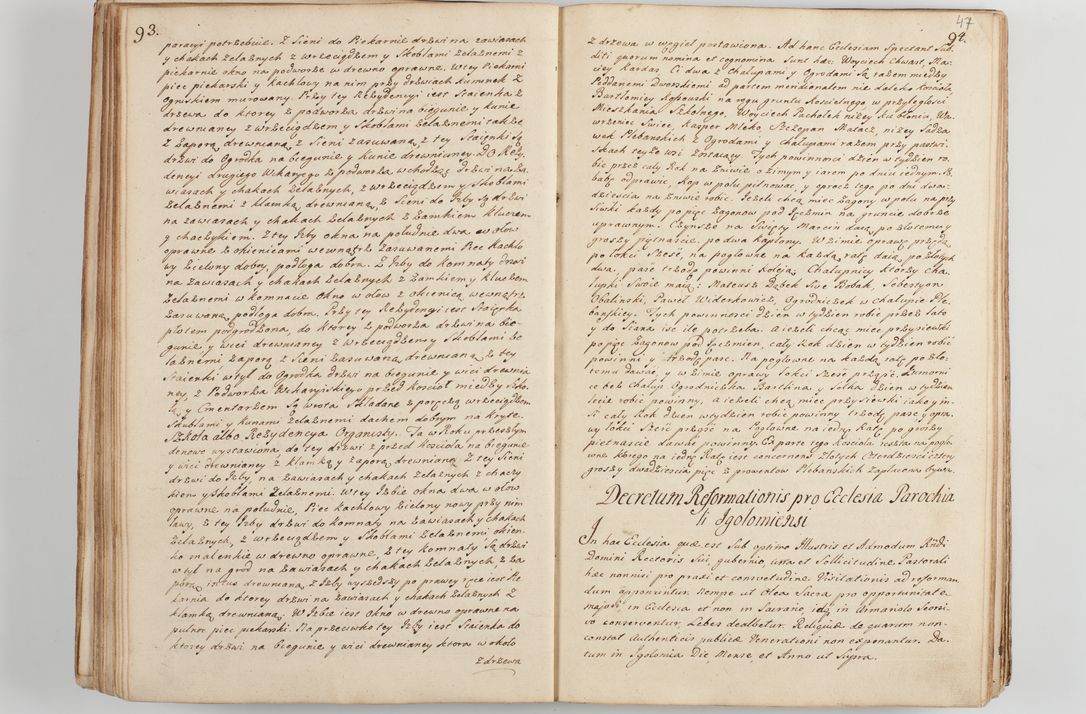 93.
paracyi potrzebuie. Z Sieni do Piekarnie drzwi na zawiasach
y chakach żelaznych z wrzeciądzem y Skoblami żelaznemi z
piekarnie okno na podworze w drewno oprawne. W tey Piekarni
piec piekarski y kachlowy na nim przy drzwiach kumnek z
Ogniskiem murowany. Przy tey Rezydencyi iest Staienka z
drzewa do ktorey z podworza drzwi na biegunie y kunie
drewnianey z wrzeciądzem y Skoblami żelaznemi także
z zaporą drewnianą, z Sieni zasuwaną, z tey Staienki Są
drzwi do Ogrodka na biegunie y kunie drewnianey. Do Rezy-
dencyi drugiego Wikaryego z podworza wchodząc drzwi na za-
wiasach y chakach żelaznych, z wrzeciądzem y Skoblami
żelaznemi z klamką drewnianą, z Sieni do Izby Są drzwi
na zawiasach y chakach żelaznych z zamkiem kluczem
y haczykiem. Z tey Izby okna na południe dwa w ołow
oprawne z okienicami wewnątrz zasuwanemi Piec kachlo
wy bielony dobry, podłoga dobra. Z Izby do komnaty drzwi
na zawiasach y chakach żelaznych z zamkiem y kluczem
żelaznemi w komnacie okno w ołow z okienicą wewnątrz
zasuwaną, podłoga dobra. Przy tey Rezydengi iest Staięka
płotem podgrodzona, do ktorey z podworza drzwi na bie-
gunie y wici drewnianey z wrzeciądzem y Skoblami że
laznemi zaporą z Sieni zasuwaną drewnianą z tey
Staienki w tył do Ogrodka drzwi na biegunie y wici drewnia
ney, z Podworza Wikaryiskiego przed kosciol miedzy Szko-
łą y Cmentarzem Są wrota Składane z poręczą wrzeciądzem
Skublami y kunami żelaznemi dachem dobrym na kryte.
Szkoła albo Rezydencya Organisty. Ta w Roku przeszłym
denowo wystawiona do tey drzwi z przed kosciola na biegunie
y wici drewnianey z klamką y zaporą drewnianą Z tey Sieni
drzwi do Izby, na zawiasach y chakach żelaznych z chaczy
kiem y Skoblami żelaznemi. W tey Izbie okna dwa w ołow
oprawne na południe, Piec kachlowy bielony nowy przy nim
lawy, z tey Izby drzwi do komnaty na zawiasach y chakach
żelaznych, z wrzeciądzem y Skoblami żelaznemi okien-
ko malenkie w drewno oprawne, z tey komnaty Są drzwi
w tył na grod na zawiasach y chakach żelaznych, z za
porą intus drewnianą, z Izby wyszedszy po prawey ręce iest Pie
karnia do ktorey drzwi na zawiasach y chakach żelaznych z
klamką drewnianą, W Izbie iest okno w drewno oprawne na
pułnoc piec piekarski. Na przeciwko tey Izby iest Staienka do
ktorey drzwi na biegunie y wici drewnianey ktora w około
z drzewa
47
94.
z drzewa w węgiel postawiona. Ad hanc Ecclesiam Spectant Sub
diti quorum nomina et cognomina Sunt hæc: Woyciech Chwast, Ma-
ciey Kardas Ci dwa z Chalupami y Ogrodami Są razem między
Poddanemi Dworskiemi ad partem mendionatem nie daleko kosciola
Bartłomiey Kosowski na rogu gruntu Koscielnego w przyległosci
Mieszkania Szkolnego, Woyciech Pacholek niżey ku błoniu, Wa-
wrzeniec Swiec, Kasper Mleko, Szczepan Matacz, niżey Sadza
wek Plebanskich z Ogrodami y chalupami razem przy pastwi-
skach teyże wsi zostaiący. Tych powinnosci dzień w tydzien ro-
bic przez cały Rok na żniwie ozimym y iarem po dniu iednym.
babę odprawic, kop w polu pilnowac, y oprocz tego po dni dwa-
dziescia na żniwie robic. Jeżeli chcą miec zagony w polu na przy
siewki każdy po pięc zagonow pod Ięczmin na gruncie dobrze
uprawnym. Czynsze na Swięty Marcin daią, po złotemu y
groszy pytnaście, po dwa kapłony. W zimie oprawę przędą
po łokci Szesc, na pogłowne na każdą ratę daią po złotych
dwa, pasc trzodę powinni koleją. Chalupnicy ktorzy cha
lupki Swoie maią: Mateusz Dąbek Sive Bobak, Sebestyan
Obalinski, Paweł Widerkowicz, Ogrodniczek w chalupie Ple-
banskiey. Tych powinnosci dzien w tydzien robic przez lato
y do Siana isc ile potrzeba. a ieżeli chcą miec przysiewki
po pięc zagonow pod Ięczmien, cały Rok dzien w tydzien robic
powinni y trzodę pasc. Na pogłowne na każdą ratę po zło-
temu dawac, y w zimie oprawy łokci Szesc prząsc. Komorni
ce bez chalup Ogrodniczka Bartlina y Solka dzien w tydzien
lecie robic powinny, a ieżeli chcą miec przysiewki iako y in-
si cały Rok dzien w tydzien robic powinny trzodę pasc y opra-
wy łokci Szesc prząsc na Pogłowne na iedną Ratę po groszy
pietnascie dawac powinny. Ex parte tego kosciola idzie na pogło-
wne korego na iedną Ratę iest concernens złotych Czterdziescicztery
groszy dwadziescia pięc z prowentow Plebanskich zapłacona bywa.
Decretum Reformationis pro Ecclesia Parochia
li Igolomiensi
In hac Ecclesia quæ est Sub optimo Illustris et Admodum Rndi
Domini Rectoris Sui, gubernio, cura et Sollicitudine Pastorali
hæc nonnisi pro praxi et consvetudine Visitationis ad reforman
dum apponuntur. Nempe ut Olea Sacra pro opportunitate
majori, in Ecclesia et non in Sacrario, idq in Armariolo Seorsi-
vo conserventur, Lebes dealbetur. Reliquiæ de quarum non-
constat authenticis publicæ Venerationi non exponantur. Da-
tum in Igolomia Die, Mense, et Anno ut Supra.